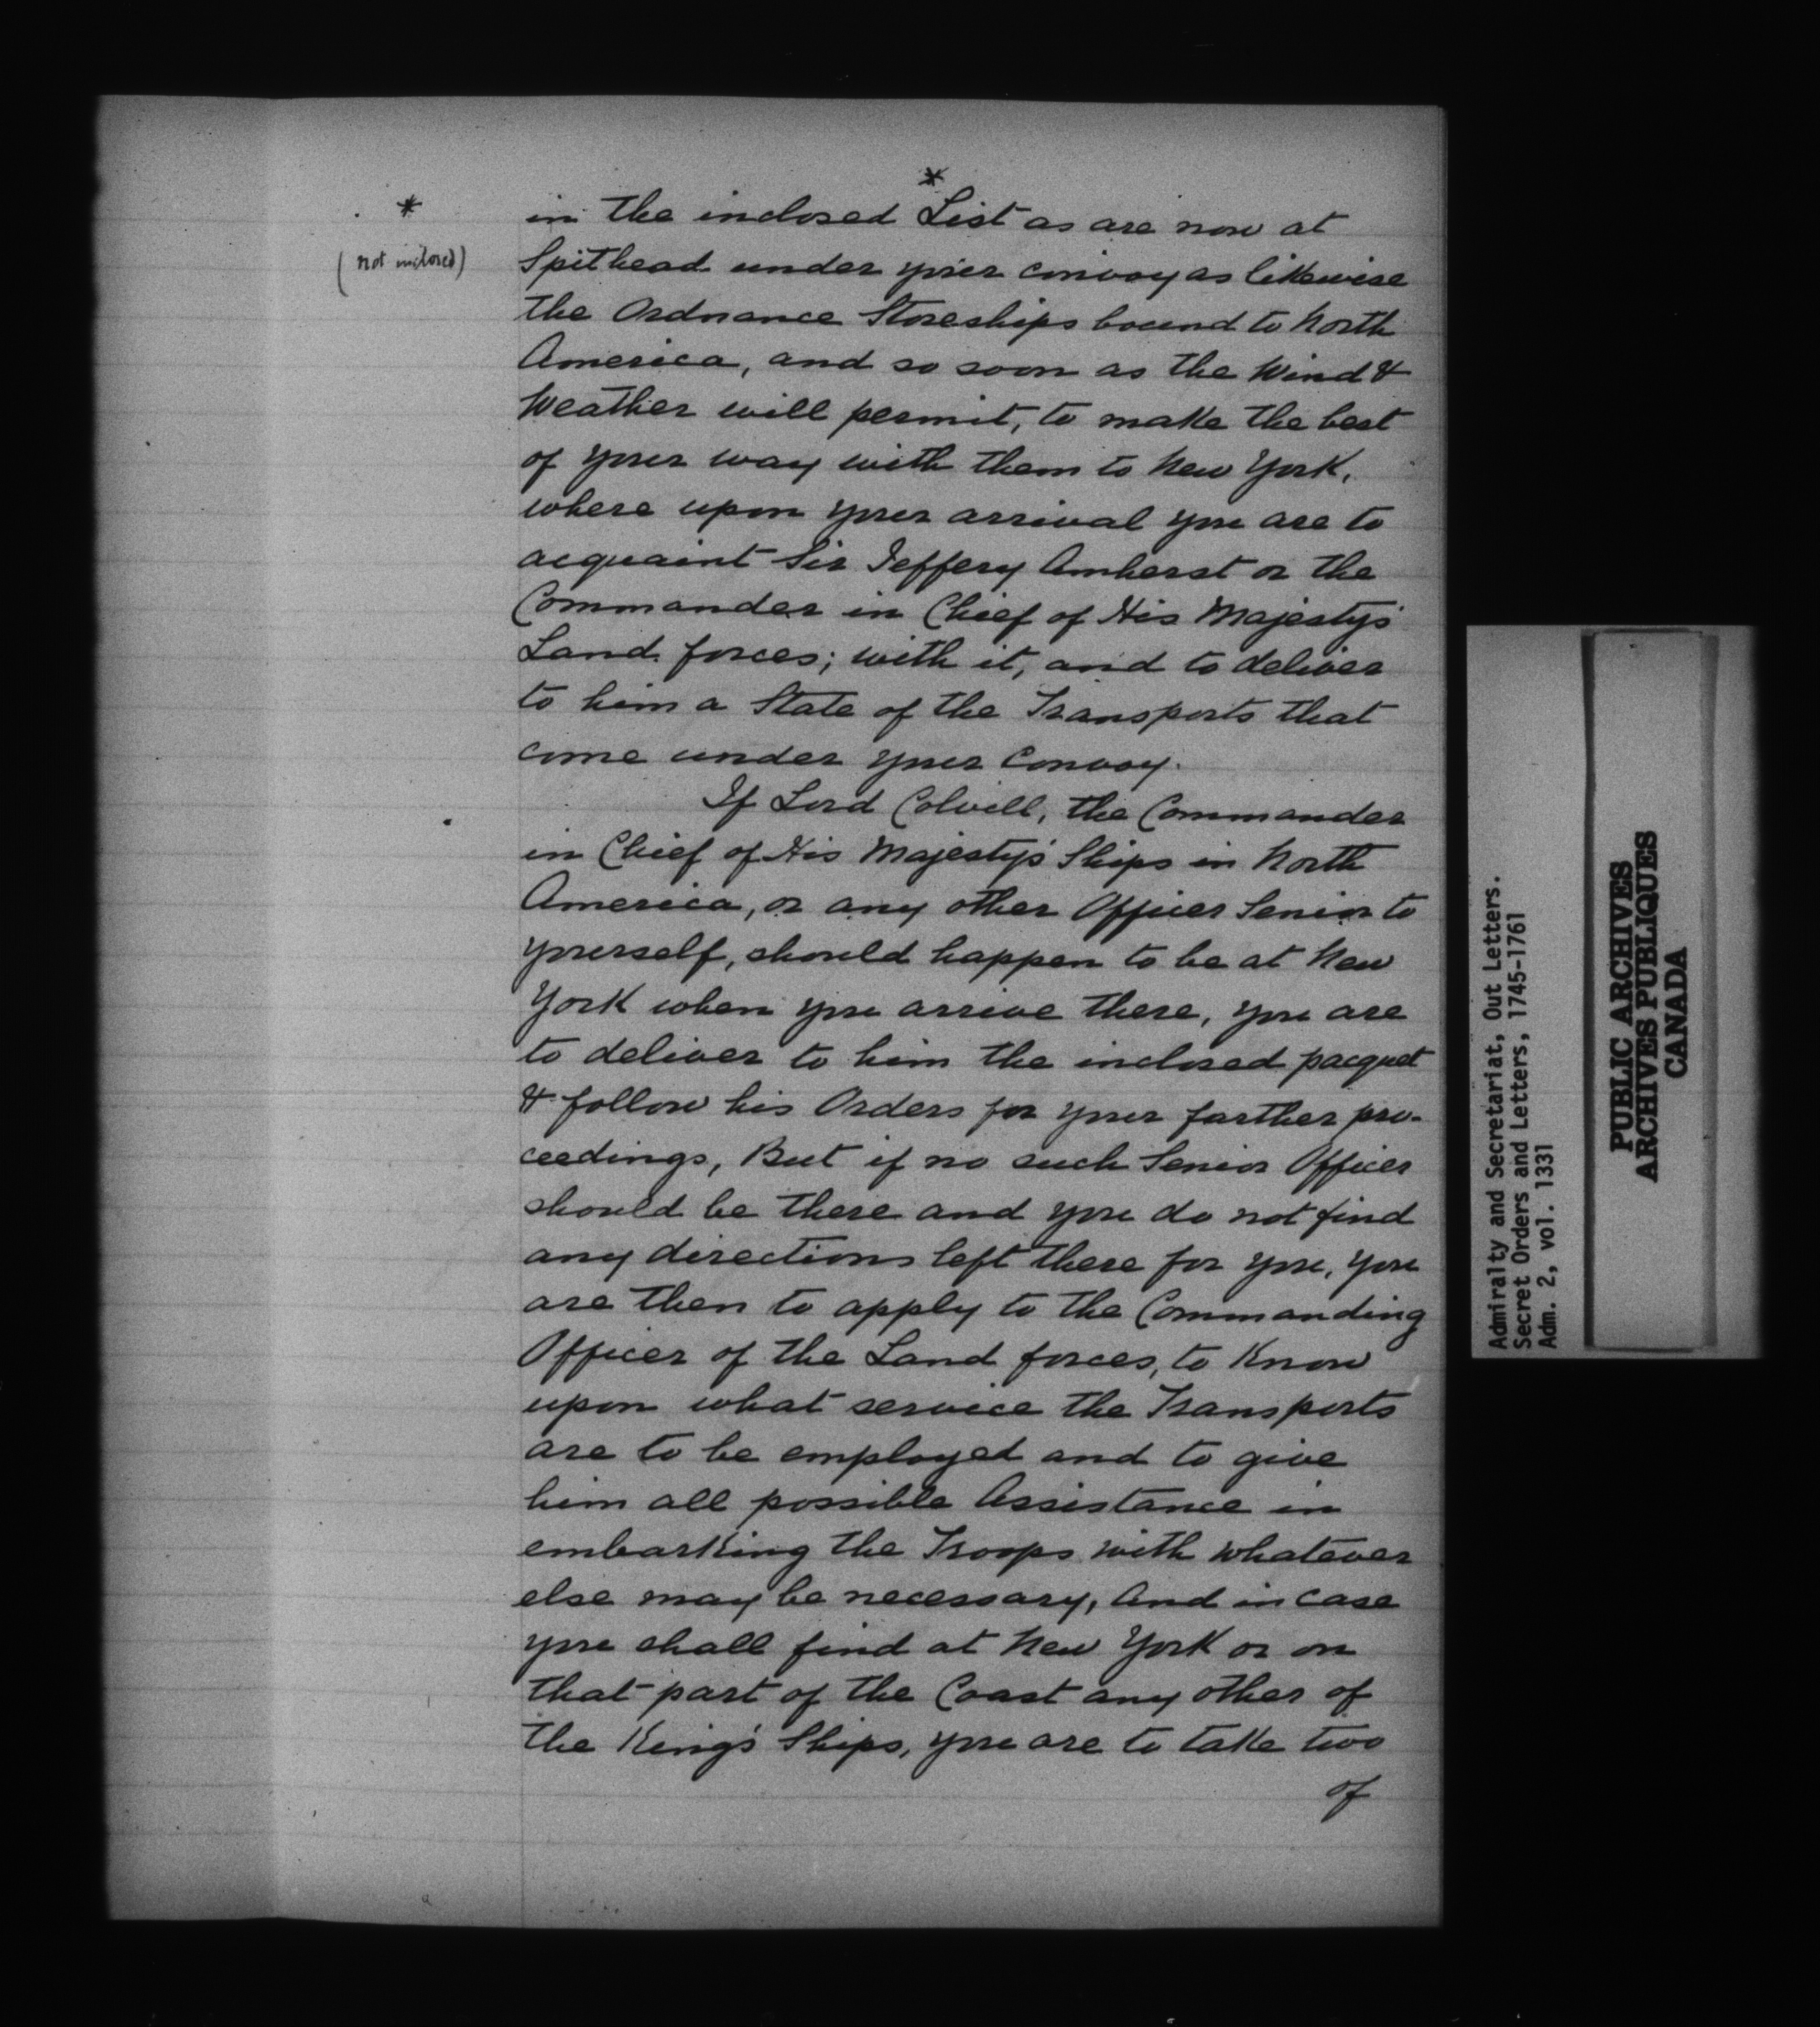 *
(not inclosed)
*
in the inclosed List as are now at
Spithead under your convoy as likewise
the Ordnance Storeships bound to North
America, and so soon as the Wind &
Weather will permit, to make the best
of your way with them to New York,
where upon your arrival you are to
acquaint Sir Jeffery Amherst or the
Commander in Chief of His Majesty's
Land forces; with it, and to deliver
to him a State of the Transports that
come under your Convoy.
If Lord Colvill, the Commander
in Chief of His Majesty's Ships in North
America, or any other Officer Senior to
yourself, should happen to be at New
York when you arrive there, you are
to deliver to him the inclosed pacquet
& follow his Orders for your farther pro-
ceedings, But if no such Senior Officer
should be there and you do not find
any directions left there for you, you
are then to apply to the Commanding
Officer of the Land forces, to Know
upon what service the Transports
are to be employed and to give
him all possible Assistance in
embarking the Troops with whatever
else may be necessary, And in case
you shall find at New York or on
that part of the Coast any other of
the King's Ships, you are to take two
of
Admiralty and Secretariat, Out Letters.
Secret Orders and Letters, 1745-1761
Adm. 2, vol. 1331
PUBLIC ARCHIVES
ARCHIVES PUBLIQUES
CANADA